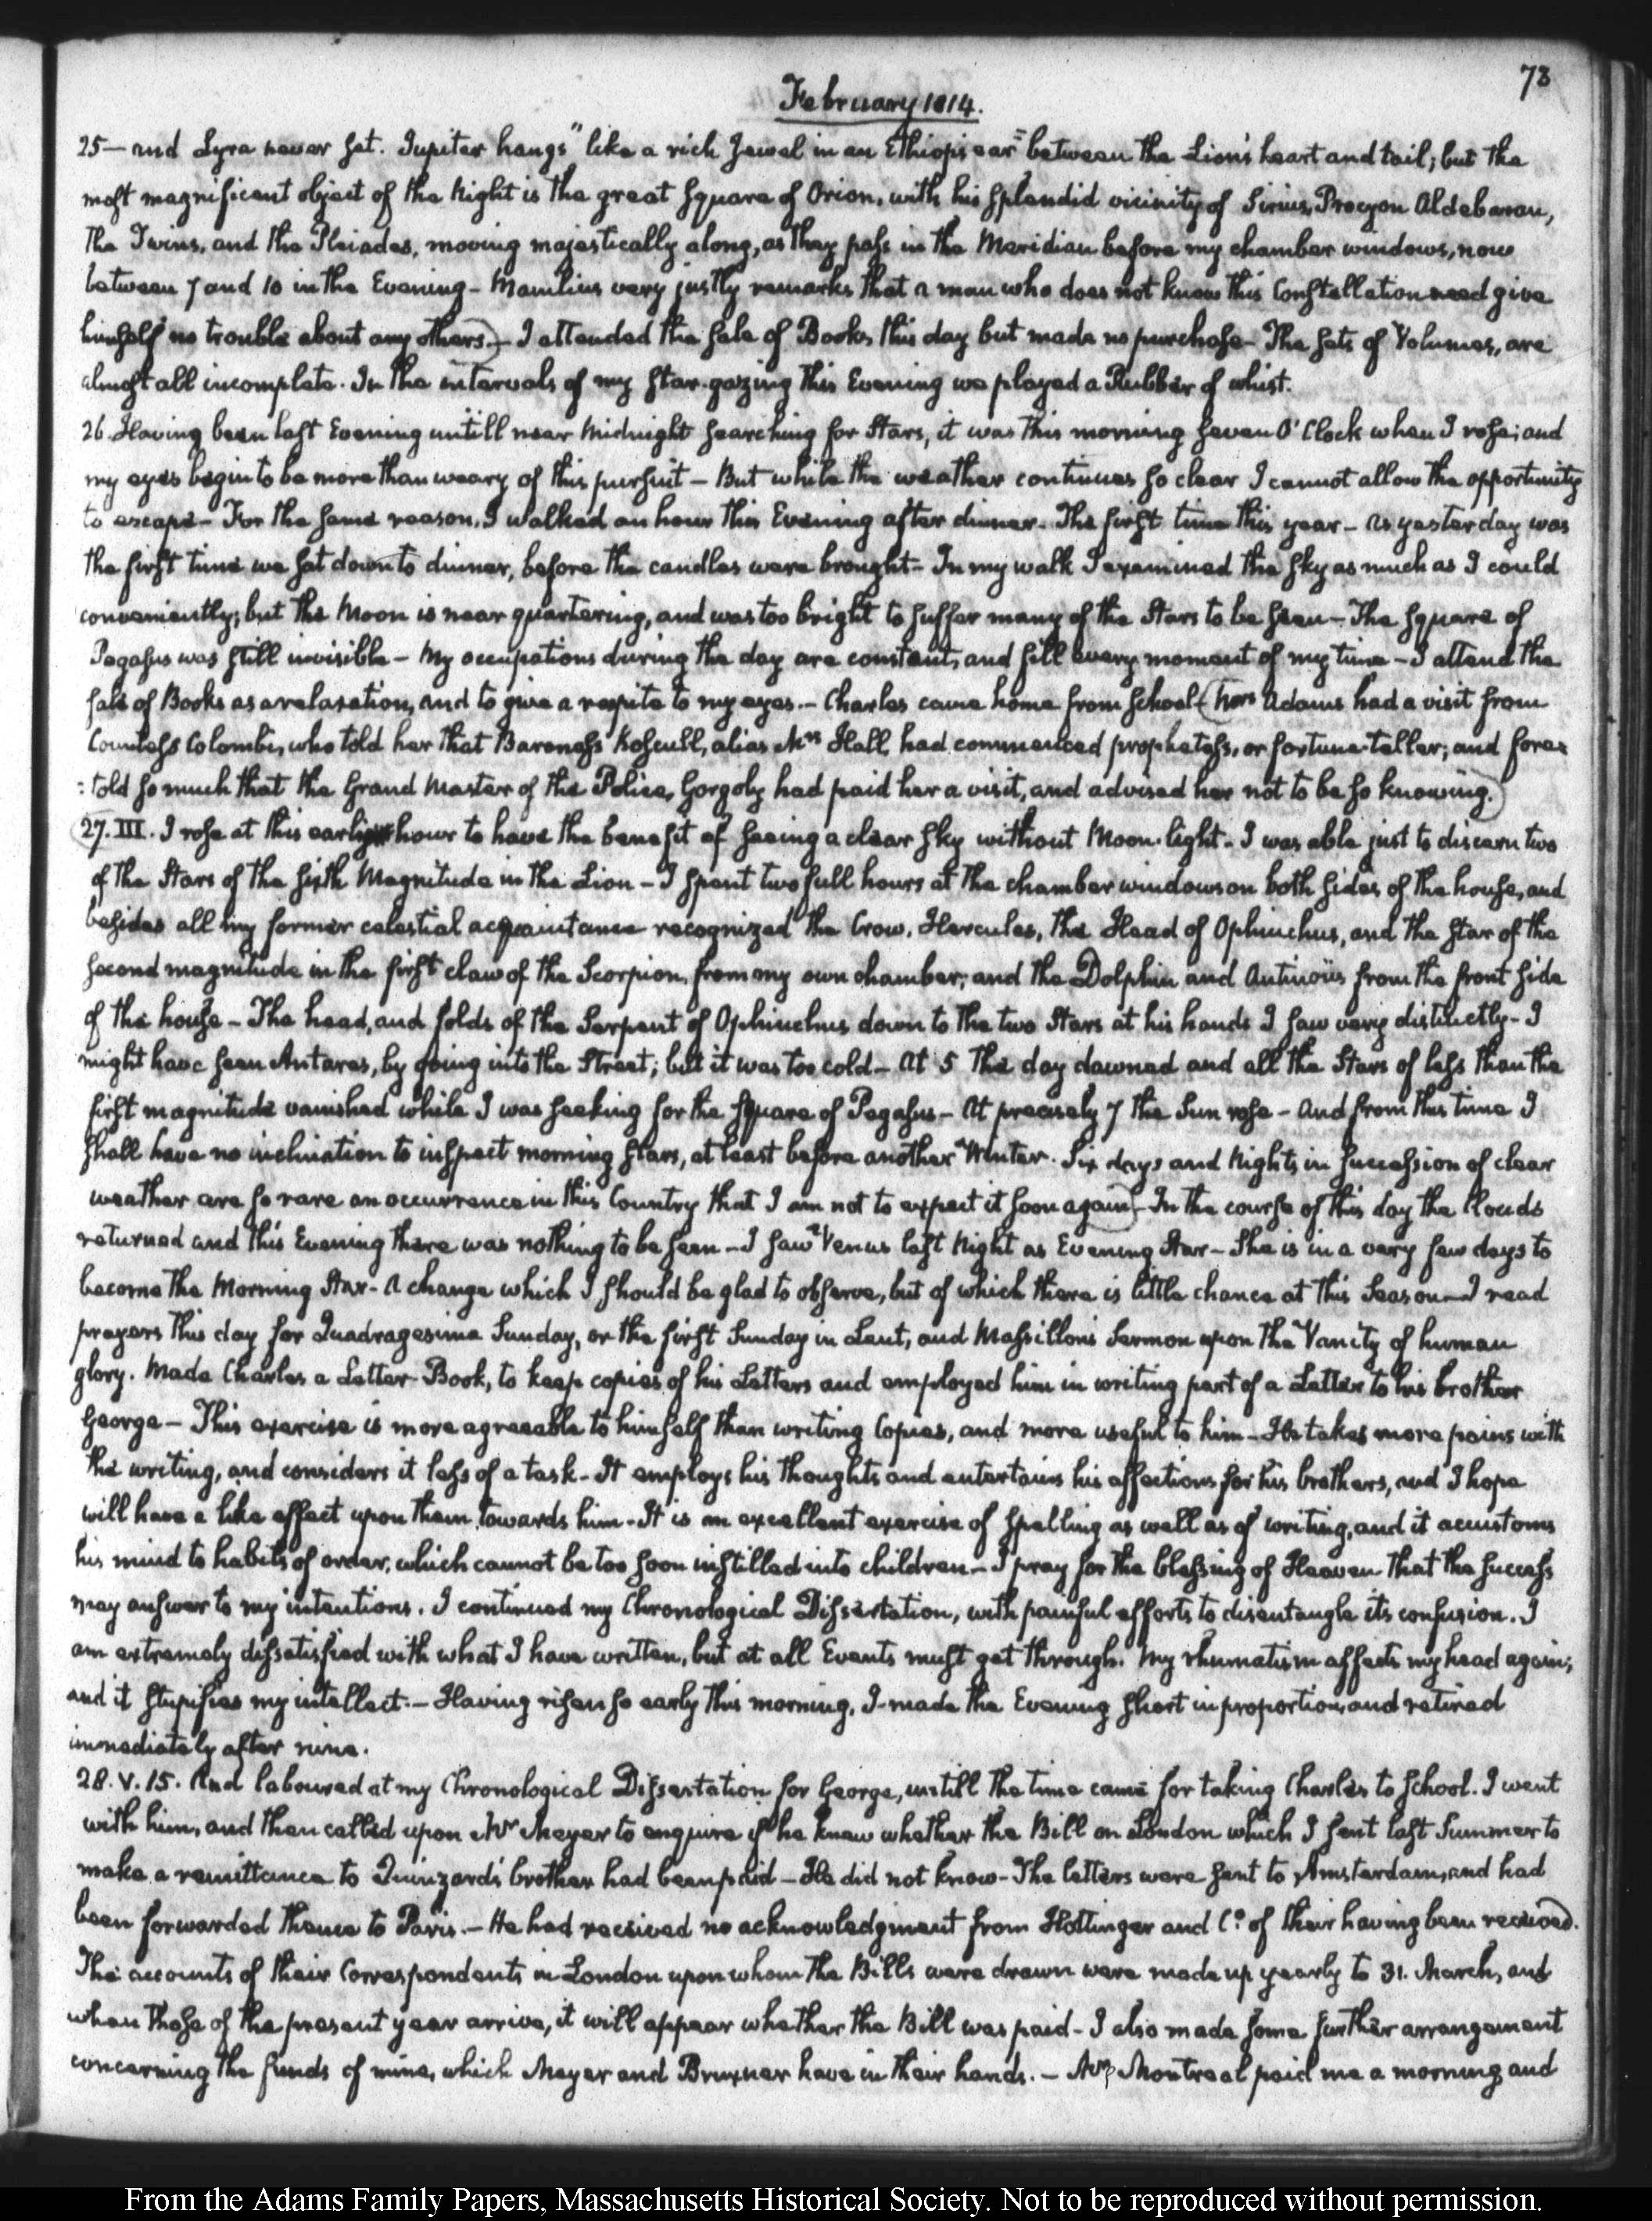 78
February 1814.
25 — and Lyra never set. Jupiter hangs "like a rich Jewel in an Ethiop's ear" between the Lion's heart and tail; but the
most magnificent object of the Night is the great Square of Orion, with his splendid vicinity of Sirius, Procyon Aldebaran,
the Twins, and the Pleiades, moving majestically along, as they pass in the Meridian before my chamber windows, now
between 7 and 10 in the Evening - Manilius very justly remarks that a man who does not know this Constellation need give
himself no trouble about any others.) — I attended the sale of Books this day but made no purchase - The sets of Volumes, are
almost all incomplete. In the intervals of my star-gazing this Evening we played a Rubber of whist.
26. Having been last Evening untill near Midnight searching for Stars, it was this morning seven O'Clock when I rose; and
my eyes begin to be more than weary of this pursuit — But while the weather continues so clear I cannot allow the opportunity
to escape - For the same reason, I walked an hour this Evening after dinner - The first time this year - as yesterday was
the first time we sat down to dinner, before the candles were brought - In my walk I examined the sky as much as I could
conveniently; but the Moon is near quartering, and was too bright to suffer many of the Stars to be seen — The Square of
Pegasus was still invisible — My occupations during the day are constant, and fill every moment of my time — I attend the
sale of Books as a relaxation, and to give a respite to my eyes. — Charles came home from School (Mrs Adams had a visit from
Countess Colombi, who told her that Baroness Koscull, alias Mrs Hall, had commenced prophetess, or fortune-teller; and fore=
:told so much that the Grand Master of the Police, Gorgoly had paid her a visit, and advised her not to be so knowing.)
(27. III. I rose at this early hour to have the benefit of seeing a clear sky without Moon-light - I was able just to discern two
of the Stars of the sixth Magnitude in the Lion — I spent two full hours at the chamber windows on both sides of the house, and
besides all my former celestial acquaintance recognized the Crow, Hercules, the Head of Ophiuchus, and the star of the
second magnitude in the first claw of the Scorpion, from my own chamber; and the Dolphin and Antinoüs from the front side
of the house — The head, and folds of the Serpent of Ophiuchus down to the two Stars at his hands I saw very distinctly - I
might have seen Antares, by going into the Street; but it was too cold — at 5 the day dawned and all the Stars of less than the
first magnitude vanished while I was seeking for the Square of Pegasus — At precisely 7 the Sun rose — and from this time I
shall have no inclination to inspect morning stars, at least before another Winter. Six days and Nights in succession of clear
weather are so rare an occurrence in this Country that I am not to expect it soon again) — In the course of this day the Clouds
returned and this Evening there was nothing to be seen — I saw Venus last Night as Evening Star — She is in a very few days to
become the Morning Star - A change which I should be glad to observe, but of which there is little chance at this Season — I read
prayers this day for Quadragesima Sunday, or the first Sunday in Lent, and Massillon's Sermon upon the Vanity of human
glory. Made Charles a Letter-Book, to keep copies of his Letters and employed him in writing part of a Letter to his brother
George — This exercise is more agreeable to himself than writing Copies, and more useful to him — He takes more pains with
the writing, and considers it less of a task - It employs his thoughts and entertains his affections for his brothers, and I hope
will have a like effect upon them towards him - It is an excellent exercise of spelling as well as of writing, and it accustoms
his mind to habits of order, which cannot be too soon instilled into children — I pray for the blessing of Heaven that the success
may answer to my intentions. I continued my Chronological Dissertation, with painful efforts to disentangle its confusion. I
am extremely dissatisfied with what I have written, but at all Events must get through. My rhumatism affects my head again;
and it stupifies my intellect. — Having risen so early this morning, I made the Evening short in proportion, and retired
immediately after nine.
28. V. 15. And laboured at my Chronological Dissertation for George, untill the time came for taking Charles to School. I went
with him, and then called upon Mr Meyer to enquire if he knew whether the Bill on London which I sent last Summer to
make a remittance to Quinzard's brother had been paid — He did not know - The letters were sent to Amsterdam, and had
been forwarded thence to Paris. — He had received no acknowledgment from Hottinger and Co. of their having been received.
The accounts of their Correspondents in London upon whom the Bills were drawn were made up yearly to 31. March, and
when those of the present year arrive, it will appear whether the Bill was paid - I also made some further arrangement
concerning the funds of mine, which Meyer and Bruxner have in their hands. — Mr Montreal paid me a morning and
From the Adams Family Papers, Massachusetts Historical Society. Not to be reproduced without permission.